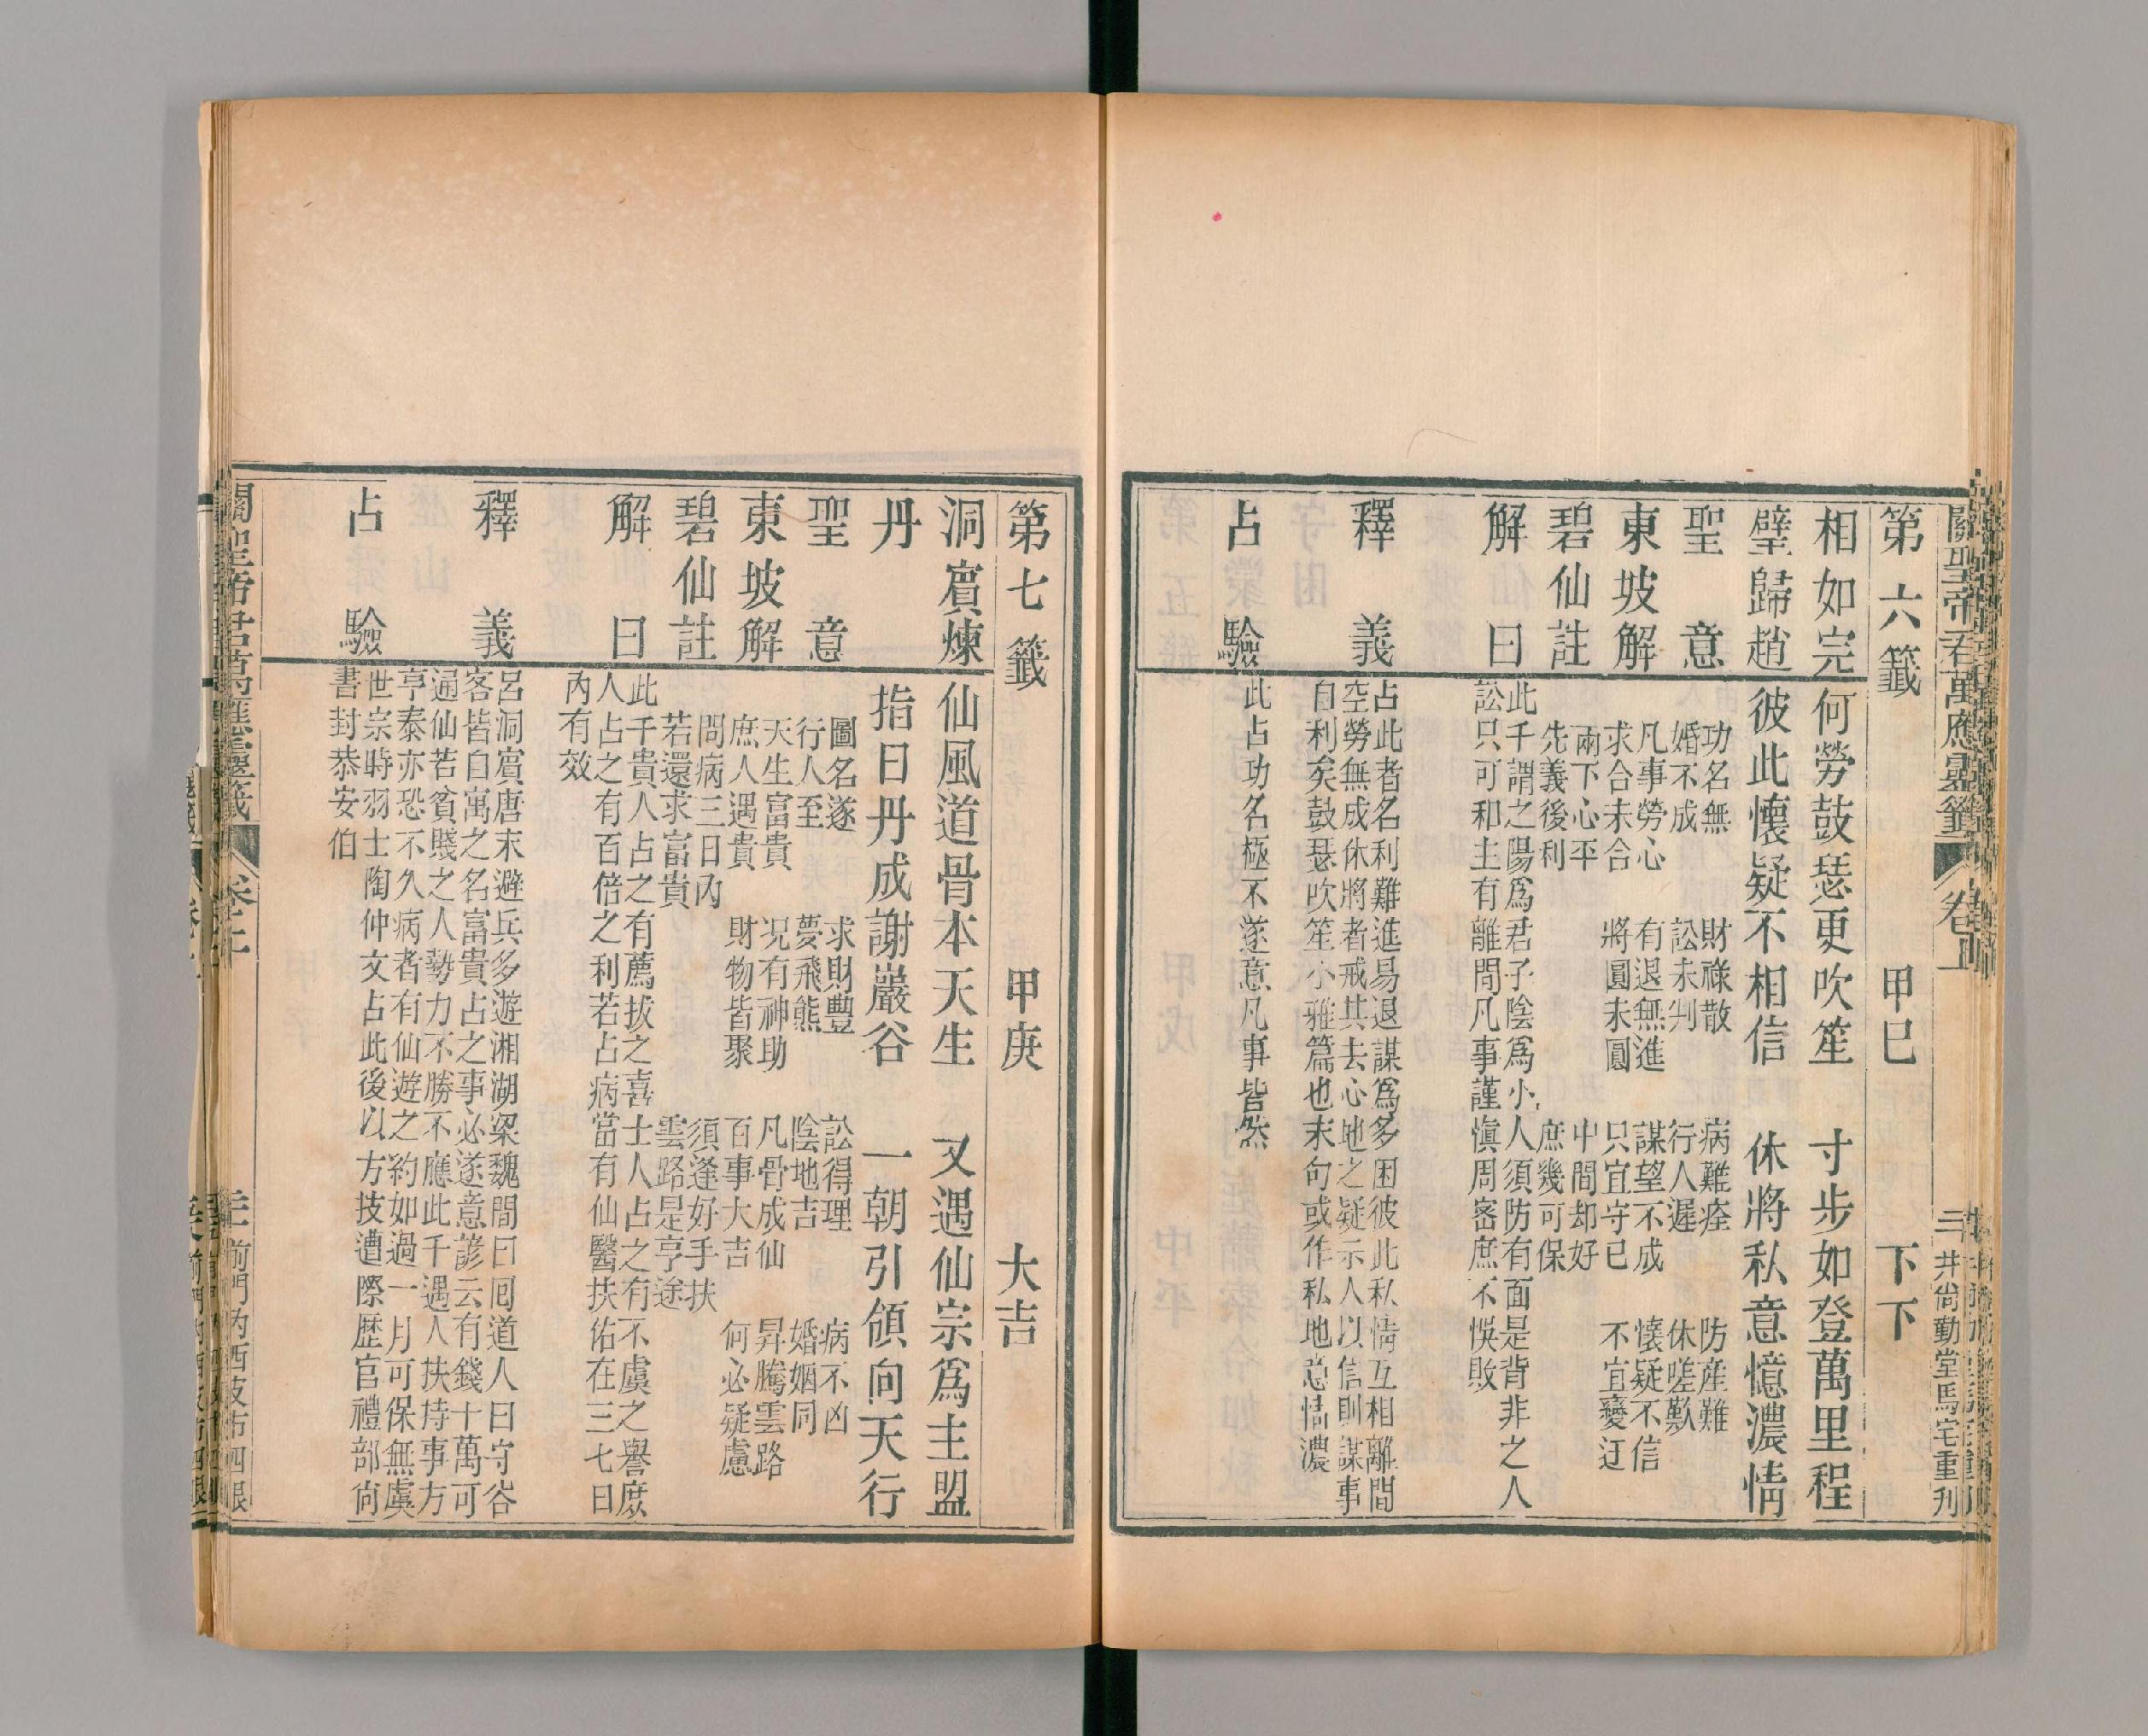 關聖帝君萬應靈籤
卷上
三
井尙勤堂馬宅重刊
第六籤　甲巳　下下
相如完璧歸趙
何勞鼓瑟更吹笙　寸步如登萬里程
彼此懷疑不相信　休將私意憶濃情
聖意
功名無　財祿散　病難痊　防産難
婚不成　訟未判　行人遲　休嗟歎
東坡解
凡事勞心　有退無進　謀望不成　懷疑不信
求合未合　將圓未圓　只宜守已　不宜變迂
碧仙註
兩下心平　中間却好
先義後利　庶幾可保
解曰
此千謂之陽爲君子陰爲小人須防有面是背非之人
訟只可和主有離間凡事謹愼周密庶不悞敗
釋義
占此者名利難進易退謀爲多困彼此私情互相離間
空勞無成休將者戒其去心地之疑示人以信則謀事
自利矣鼓瑟吹笙小雅篇也末句或作私地惹情濃
占驗
此占功名極不遂意凡事皆然
第七籤　甲庚　大吉
洞賔煉丹
仙風道骨本天生　又遇仙宗爲主盟
指日丹成謝巖谷　一朝引領向天行
聖意
圖名遂　求財豐　訟得理　病不凶
行人至　夢飛熊　陰地吉　婚姻同
東坡解
天生富貴　况有神助　凡骨成仙　昇騰雲路
庶人遇貴　財物皆聚　百事大吉　何必疑慮
碧仙註
問病三日內　須逢好手扶
若還求富貴　雲路是亨途
解曰
此千貴人占之有薦拔之喜士人占之有不虞之譽庶
人占之有百倍之利若占病當有仙醫扶佑在三七日
內有效
釋義
呂洞賔唐末避兵多遊湘湖梁魏間曰囘道人曰守谷
客皆自寓之名富貴占之事必遂意諺云有錢十萬可
通仙若貧賤之人勢力不勝不應此千遇人扶持事方
亨泰亦恐不久病者有仙遊之約如過一月可保無虞
占驗
世宗時羽士陶仲文占此後以方技遭際歴官禮部尙
書封恭安伯
關聖帝君萬應靈籤
前門內西皮市四眼